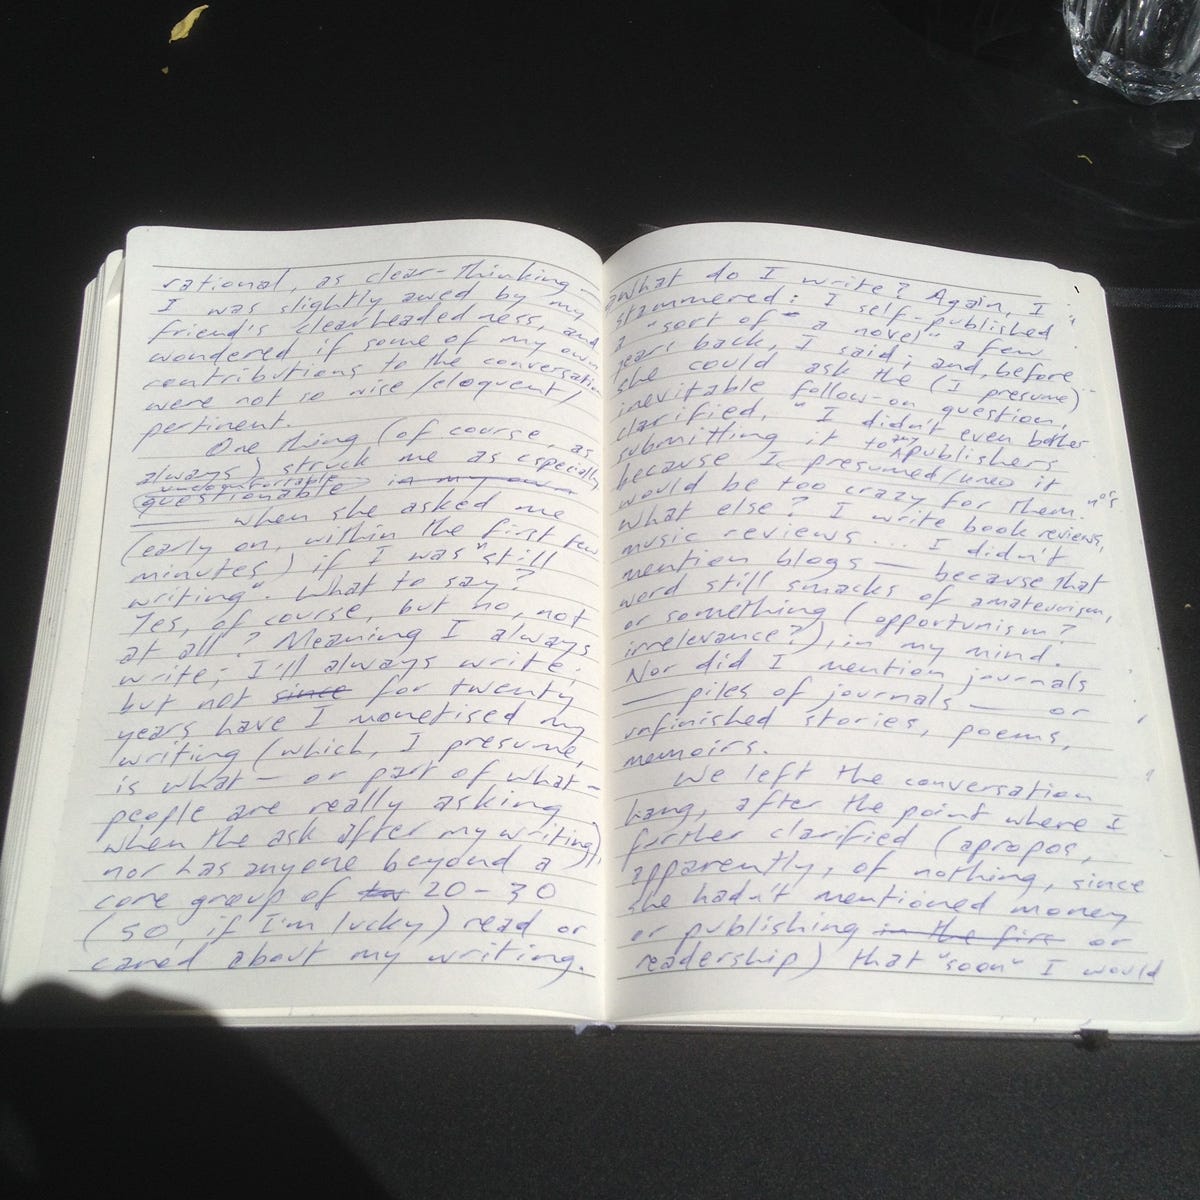 rational, as clear-thinking —
I was slightly awed by my
friend's clearheadedness, and
wondered if some of my own
contributions to the conversation
were not so wise/eloquent/
pertinent.
One thing (of course, as
always) struck me as especially
uncomfortable
questionable in my own
when she asked me
(early on, within the first few
minutes) if I was "still
writing". What to say?
Yes, of course, but no, not
at all? Meaning I always
write; I'll always write;
but not since for twenty
years have I monetised my
writing (which, I presume,
is what — or part of what —
people are really asking
when the ask after my writing),
nor has anyone beyond a
core group of 20-30
(50, if I'm lucky) read or
cared about my writing.
What do I write? Again, I
stammered: I self-published
a "sort of a novel" a few
years back, I said; and, before
she could ask the (I presume)
inevitable follow-on question,
clarified, "I didn't even bother
submitting it to any publishers
because I presumed/knew it
would be too crazy for them."
What else? I write book reviews,
music reviews... I didn't
mention blogs — because that
word still smacks of amateurism,
or something (opportunism?
irrelevance?), in my mind.
Nor did I mention journals
— piles of journals — or
unfinished stories, poems,
memoirs.
We left the conversation
hang, after the point where I
further clarified (apropos,
apparently, of nothing, since
she hadn't mentioned money
or publishing in the firs or
readership) that "soon" I would